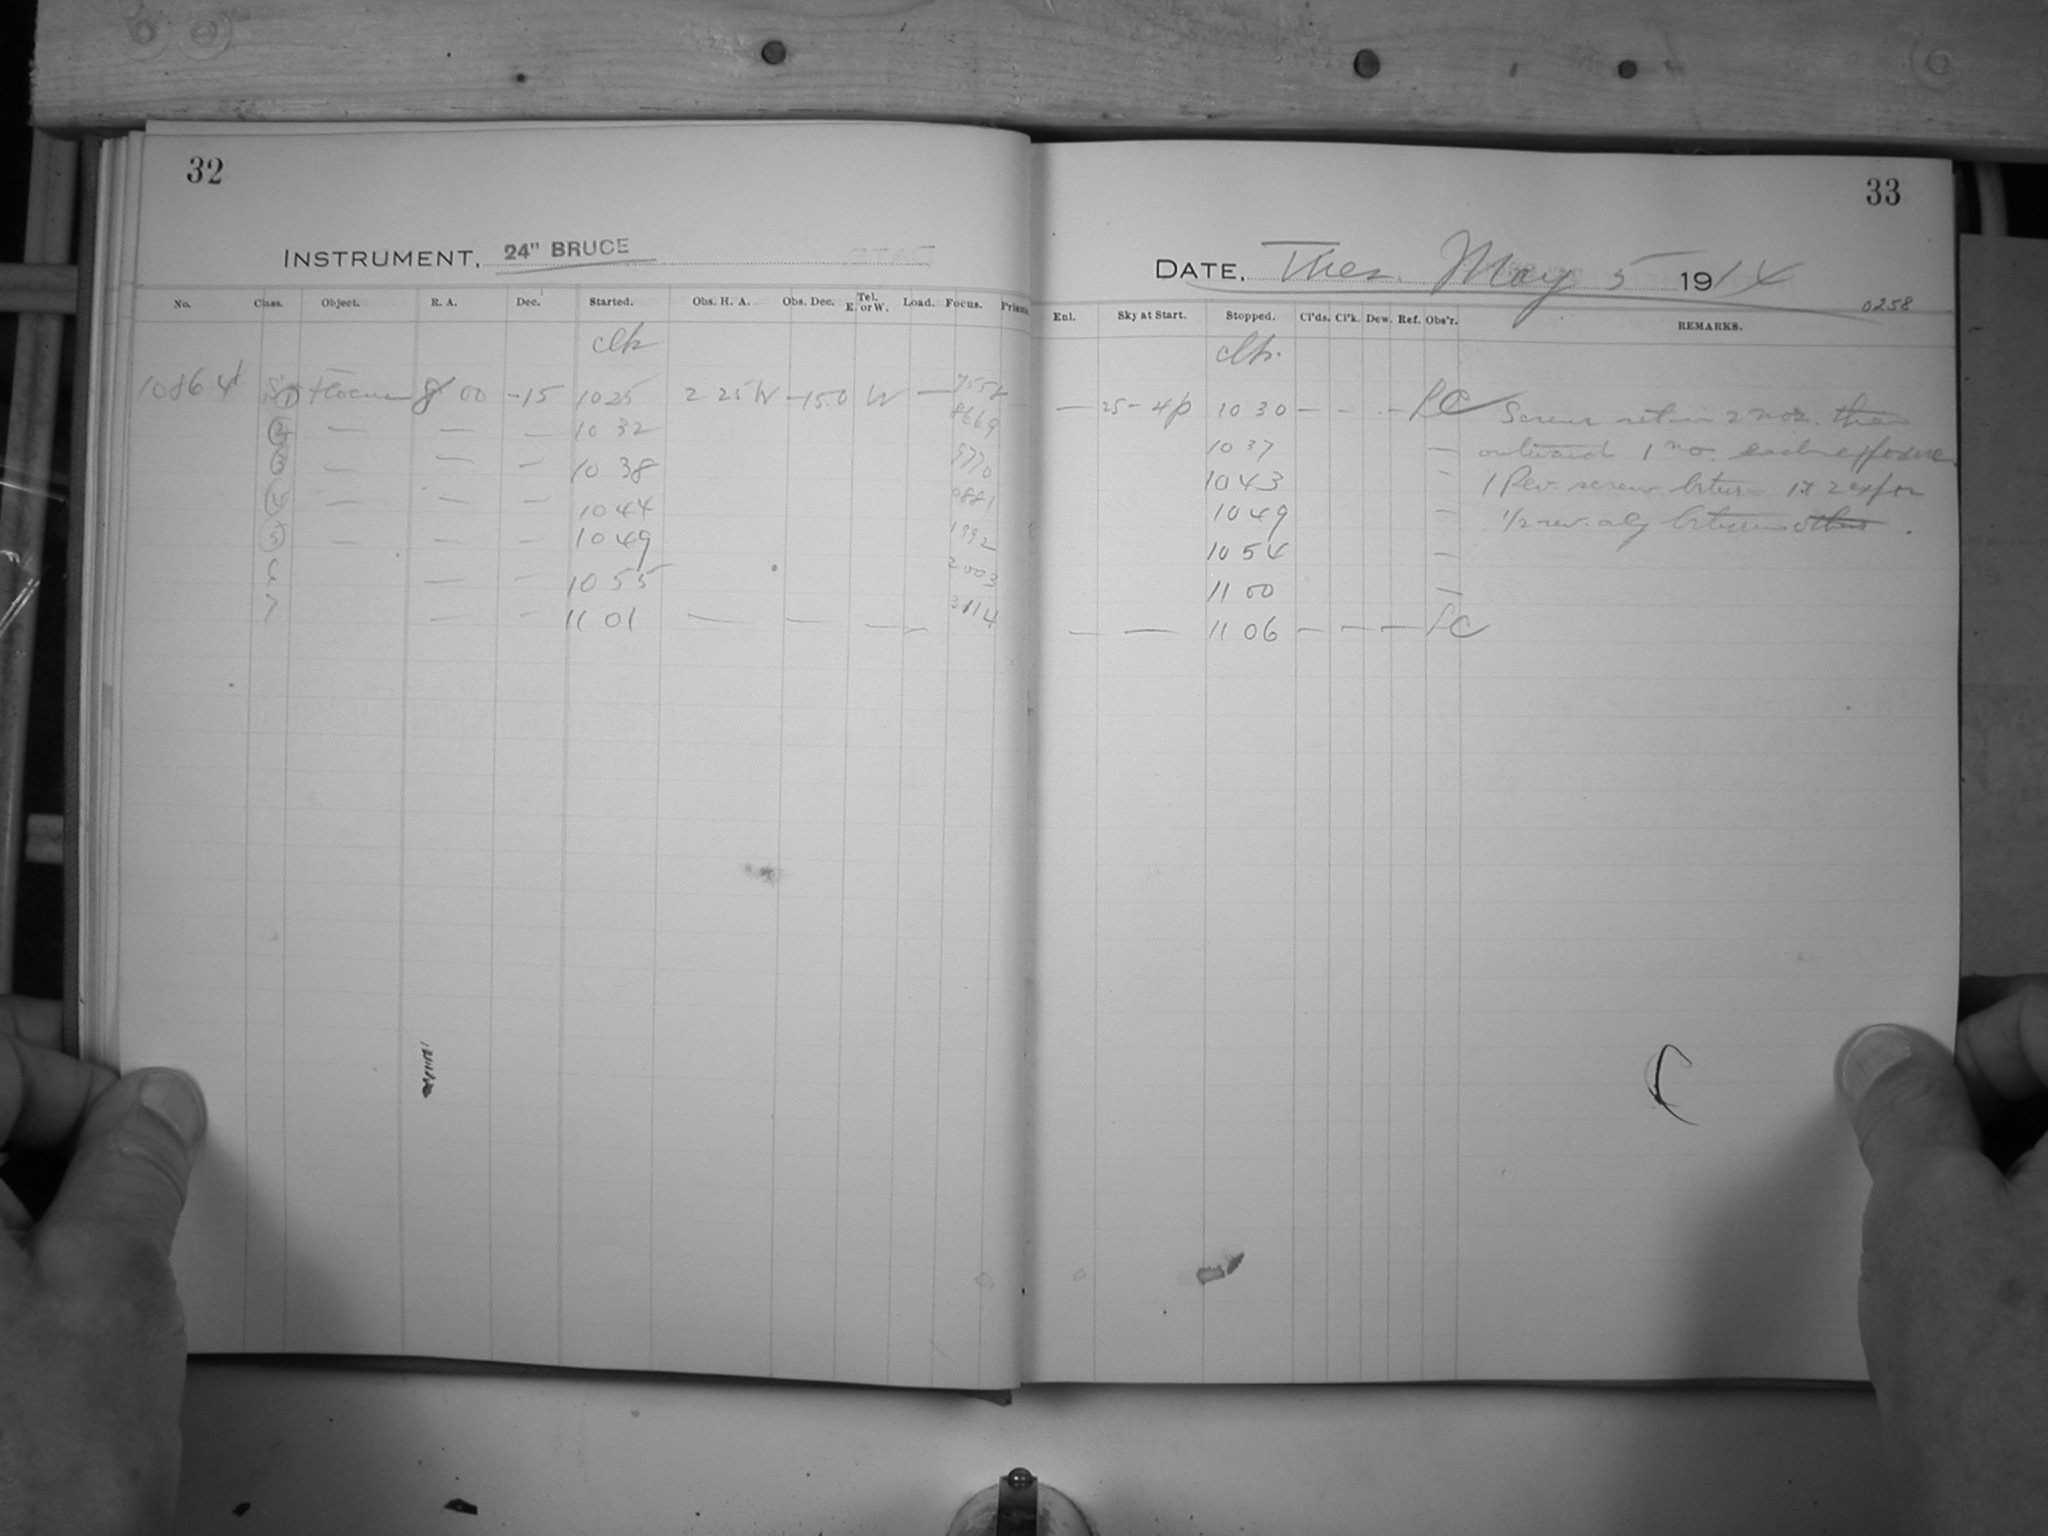 32
INSTRUMENT, 24" BRUCE
No. Class. Object. R. A. Dec. Started. Obs. H. A. Obs. Dec. Tel. E. or W. Load. Focus. Prisms.
clk
10864 1 Focus 8 00 -15 10 25 2 25 W -15.0 W — 7558 —
2 — — — 10 32 8669
3 — — — 10 38 9770
4 — — — 10 44 0881
5 — — — 10 49 1992
6 — — 10 55 2003
7 — — 11 01 — — — 3114
33
DATE, Tues. May 5 1914
0258
Enl. Sky at Start. Stopped. Cl'ds. Cl'k. Dew. Ref. Obs'r. REMARKS.
clk.
— 25 - 4p 10 30 — - - - Screws set in 2 nos. then
10 37 — outward 1 no. each exposure
10 43 - 1 Rev. screw between 1 & 2
10 49 - 1/2 rev. between others.
10 54 —
11 00 —
— — 11 06 — — —